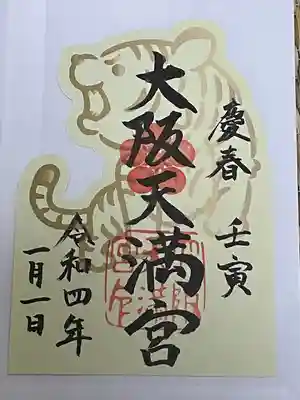 慶春 壬寅
大阪天満宮
令和四年
一月一日